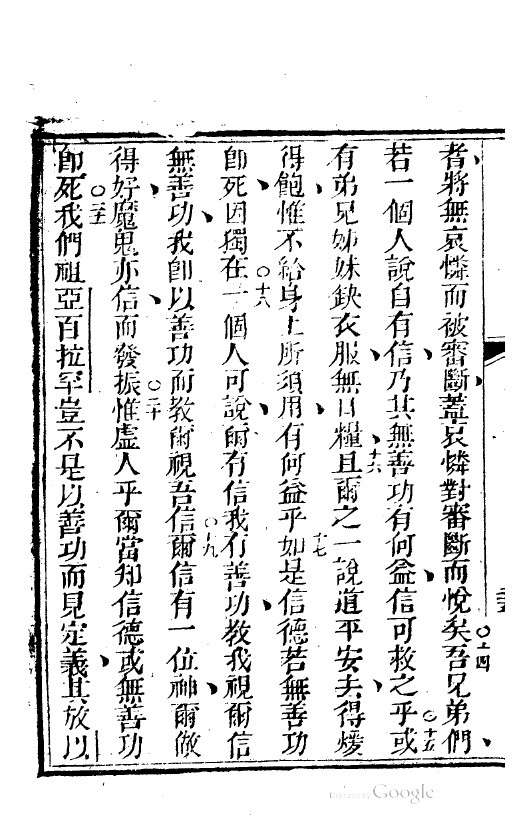 者將無哀憐而被審斷蓋哀憐對審斷而悅矣吾兄弟們
○十四
若一個人說自有信乃其無善功有何益信可救之乎或
○十五
有弟兄姊妹缺衣服無日糧且爾之一說道平安去得煖
十六
得飽惟不給身上所須用有何益乎如是信德若無善功
十七
即死因獨在一個人可說爾有信我有善功教我視爾信
○十八
無善功我即以善功而教爾視吾信爾信有一位神爾做
○十九
得好魔鬼亦信而發振惟虛人乎爾當知信德或無善功
○二十
即死我們祖亞百拉罕豈不是以善功而見定義其放以
○二十一
Digitized by Google